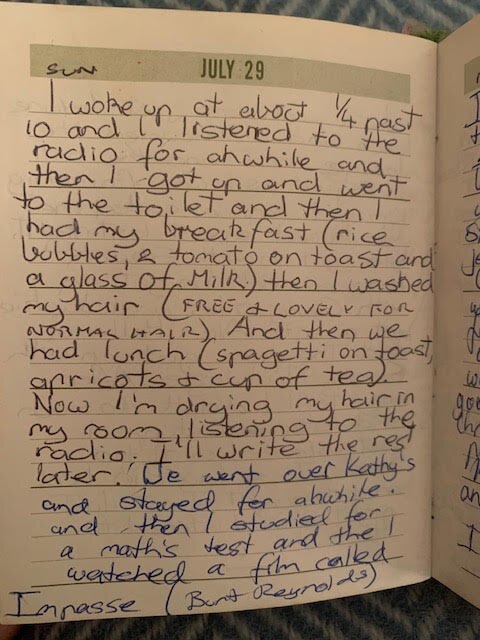 SUN JULY 29
I woke up at about 1/4 past
10 and I listened to the
radio for ahwhile and
then I got up and went
to the toilet and then I
had my breakfast (rice
bubbles, 2 tomato on toast and
a glass of Milk) then I washed
my hair (FREE & LOVELY FOR
NORMAL HAIR) And then we
had lunch (spagetti on toast,
apricots & cup of tea).
Now I'm drying my hair in
my room listening to the
radio. I'll write the rest
later. We went over Kathy's
and stayed for ahwhile.
and then I studied for
a math's test and the I
watched a film called
Impasse (Burt Reynolds)